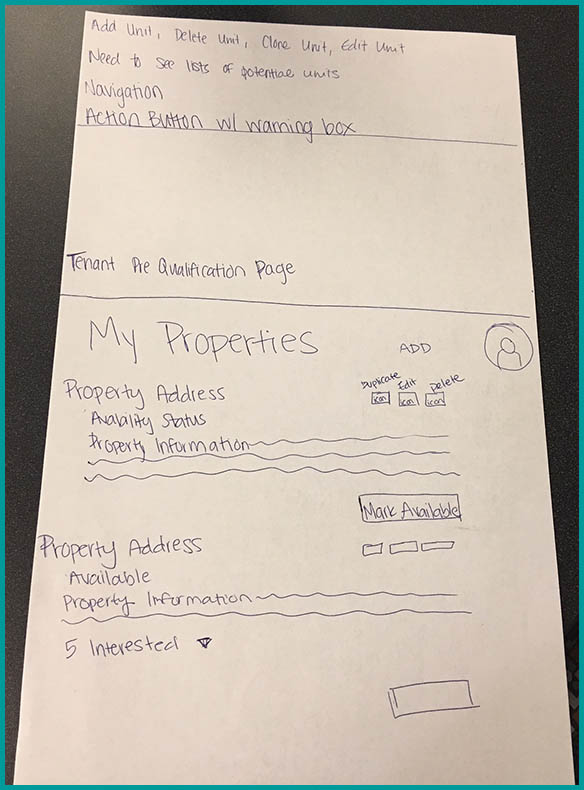 Add Unit, Delete Unit, Clone Unit, Edit Unit
Need to see lists of potential units
Navigation
Action Button w/ warning box
Tenant Pre Qualification Page
My Properties
ADD
Property Address
Duplicate Edit Delete
icon icon icon
Avability Status
Property Information
Mark Available
Property Address
Available
Property Information
5 Interested